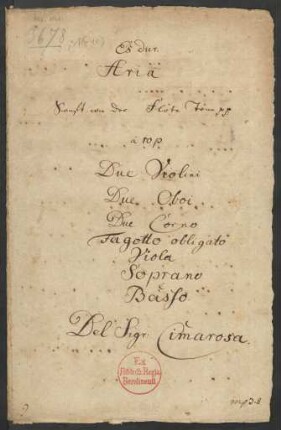 3678
Es dur.
Aria
Sanft von der Flöte Tön pp
à 10 p.
Due Violini
Due Oboi
Due Corno
Fagotto obligato
Viola
Soprano
e
Basso
Del Sigr Cimarosa.
Ex
Biblioth. Regia
Berolinensi.